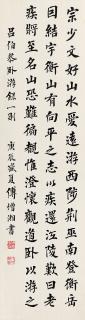 宗少文好山水愛遠游西陟荊巫南登衡岳
因結宇衡山有向平之志以疾還江陵歎曰老
疾將至名山恐難徧覩惟澄懷觀道卧以游之
呂伯恭卧游錄一則 庚辰歲夏傅增湘書